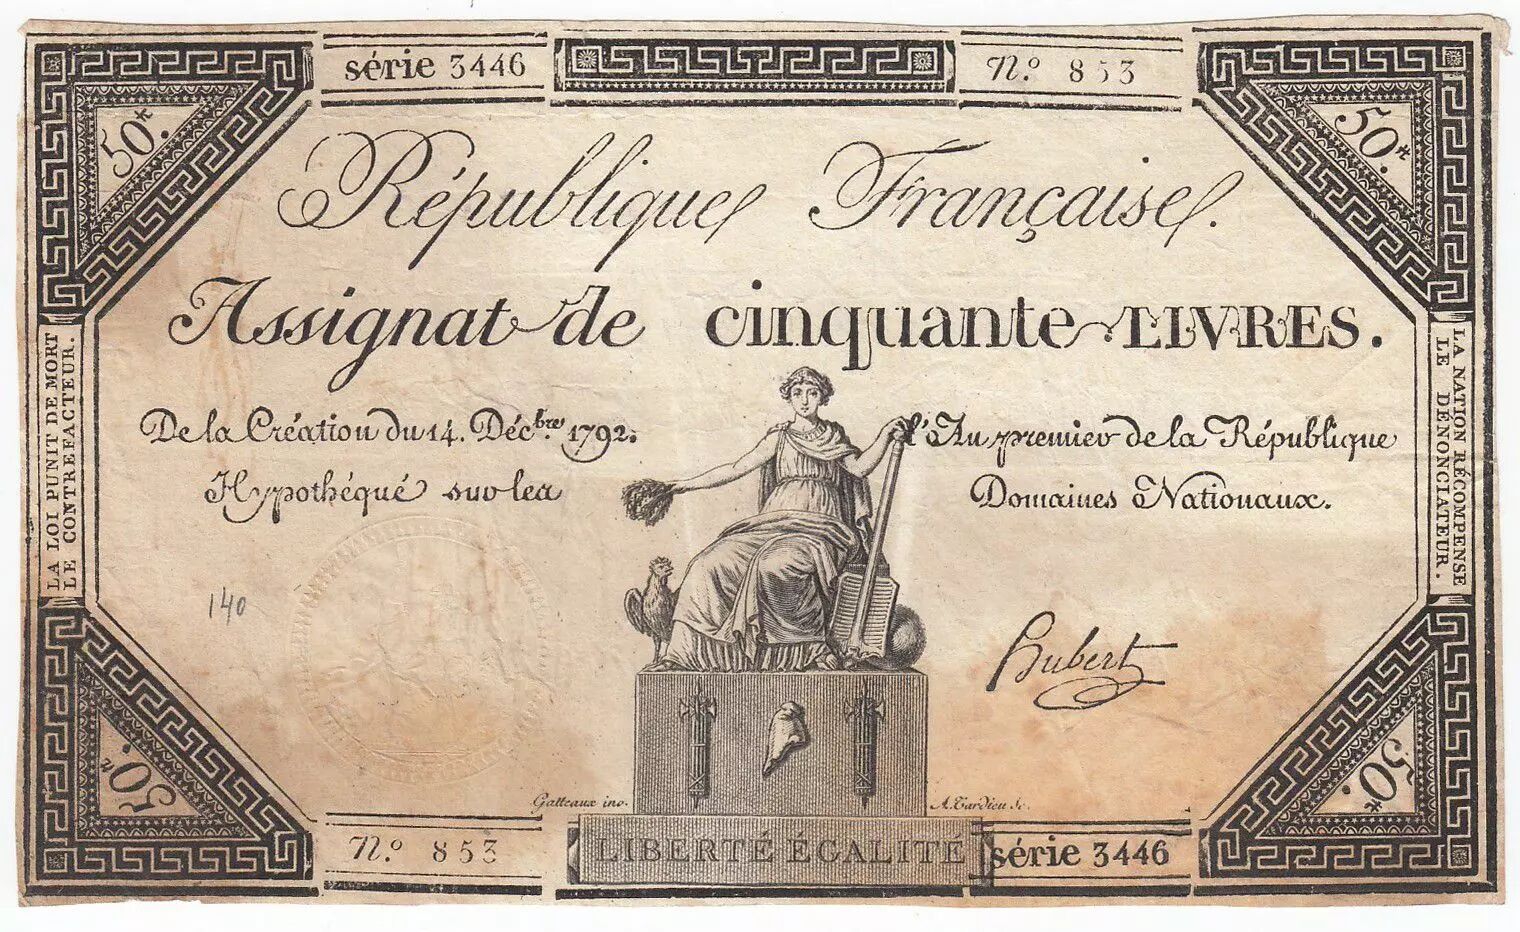 série 3446
N.º 853
50.₶
50.₶
République Française.
Assignat de cinquante LIVRES.
De la Création du 14. Décbre. 1792.
l'An premier de la République
Hypothéqué sur les
Domaines Nationaux.
LA LOI PUNIT DE MORT
LE CONTREFACTEUR.
LA NATION RÉCOMPENSE
LE DÉNONCIATEUR.
140
Hubert
Gatteaux inv.
A. Tardieu Sc.
50.₶
50.₶
N.º 853
LIBERTÉ ÉGALITÉ
série 3446